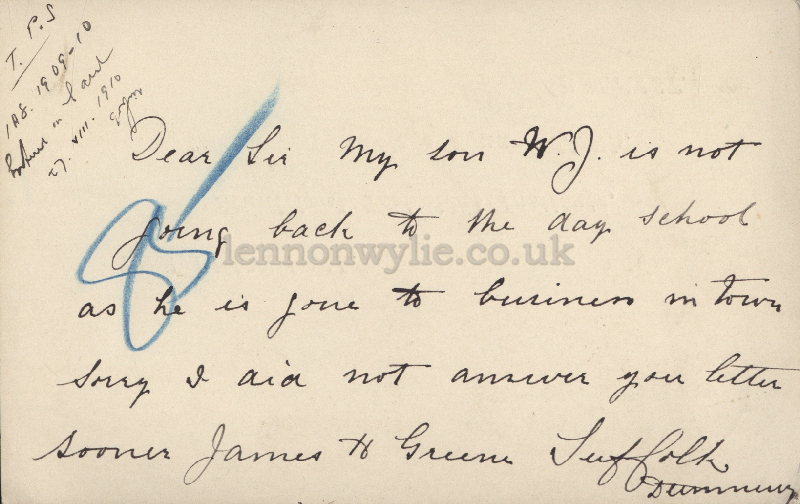 T. P.S
1A8. 1909-10
in Card
27. VIII. 1910
Dear Sir My son W.J. is not
going back to the day school
lennonwylie.co.uk
as he is gone to business in town
Sorry I did not answer you letter
sooner James H Greene Suffolk
Dunmurry